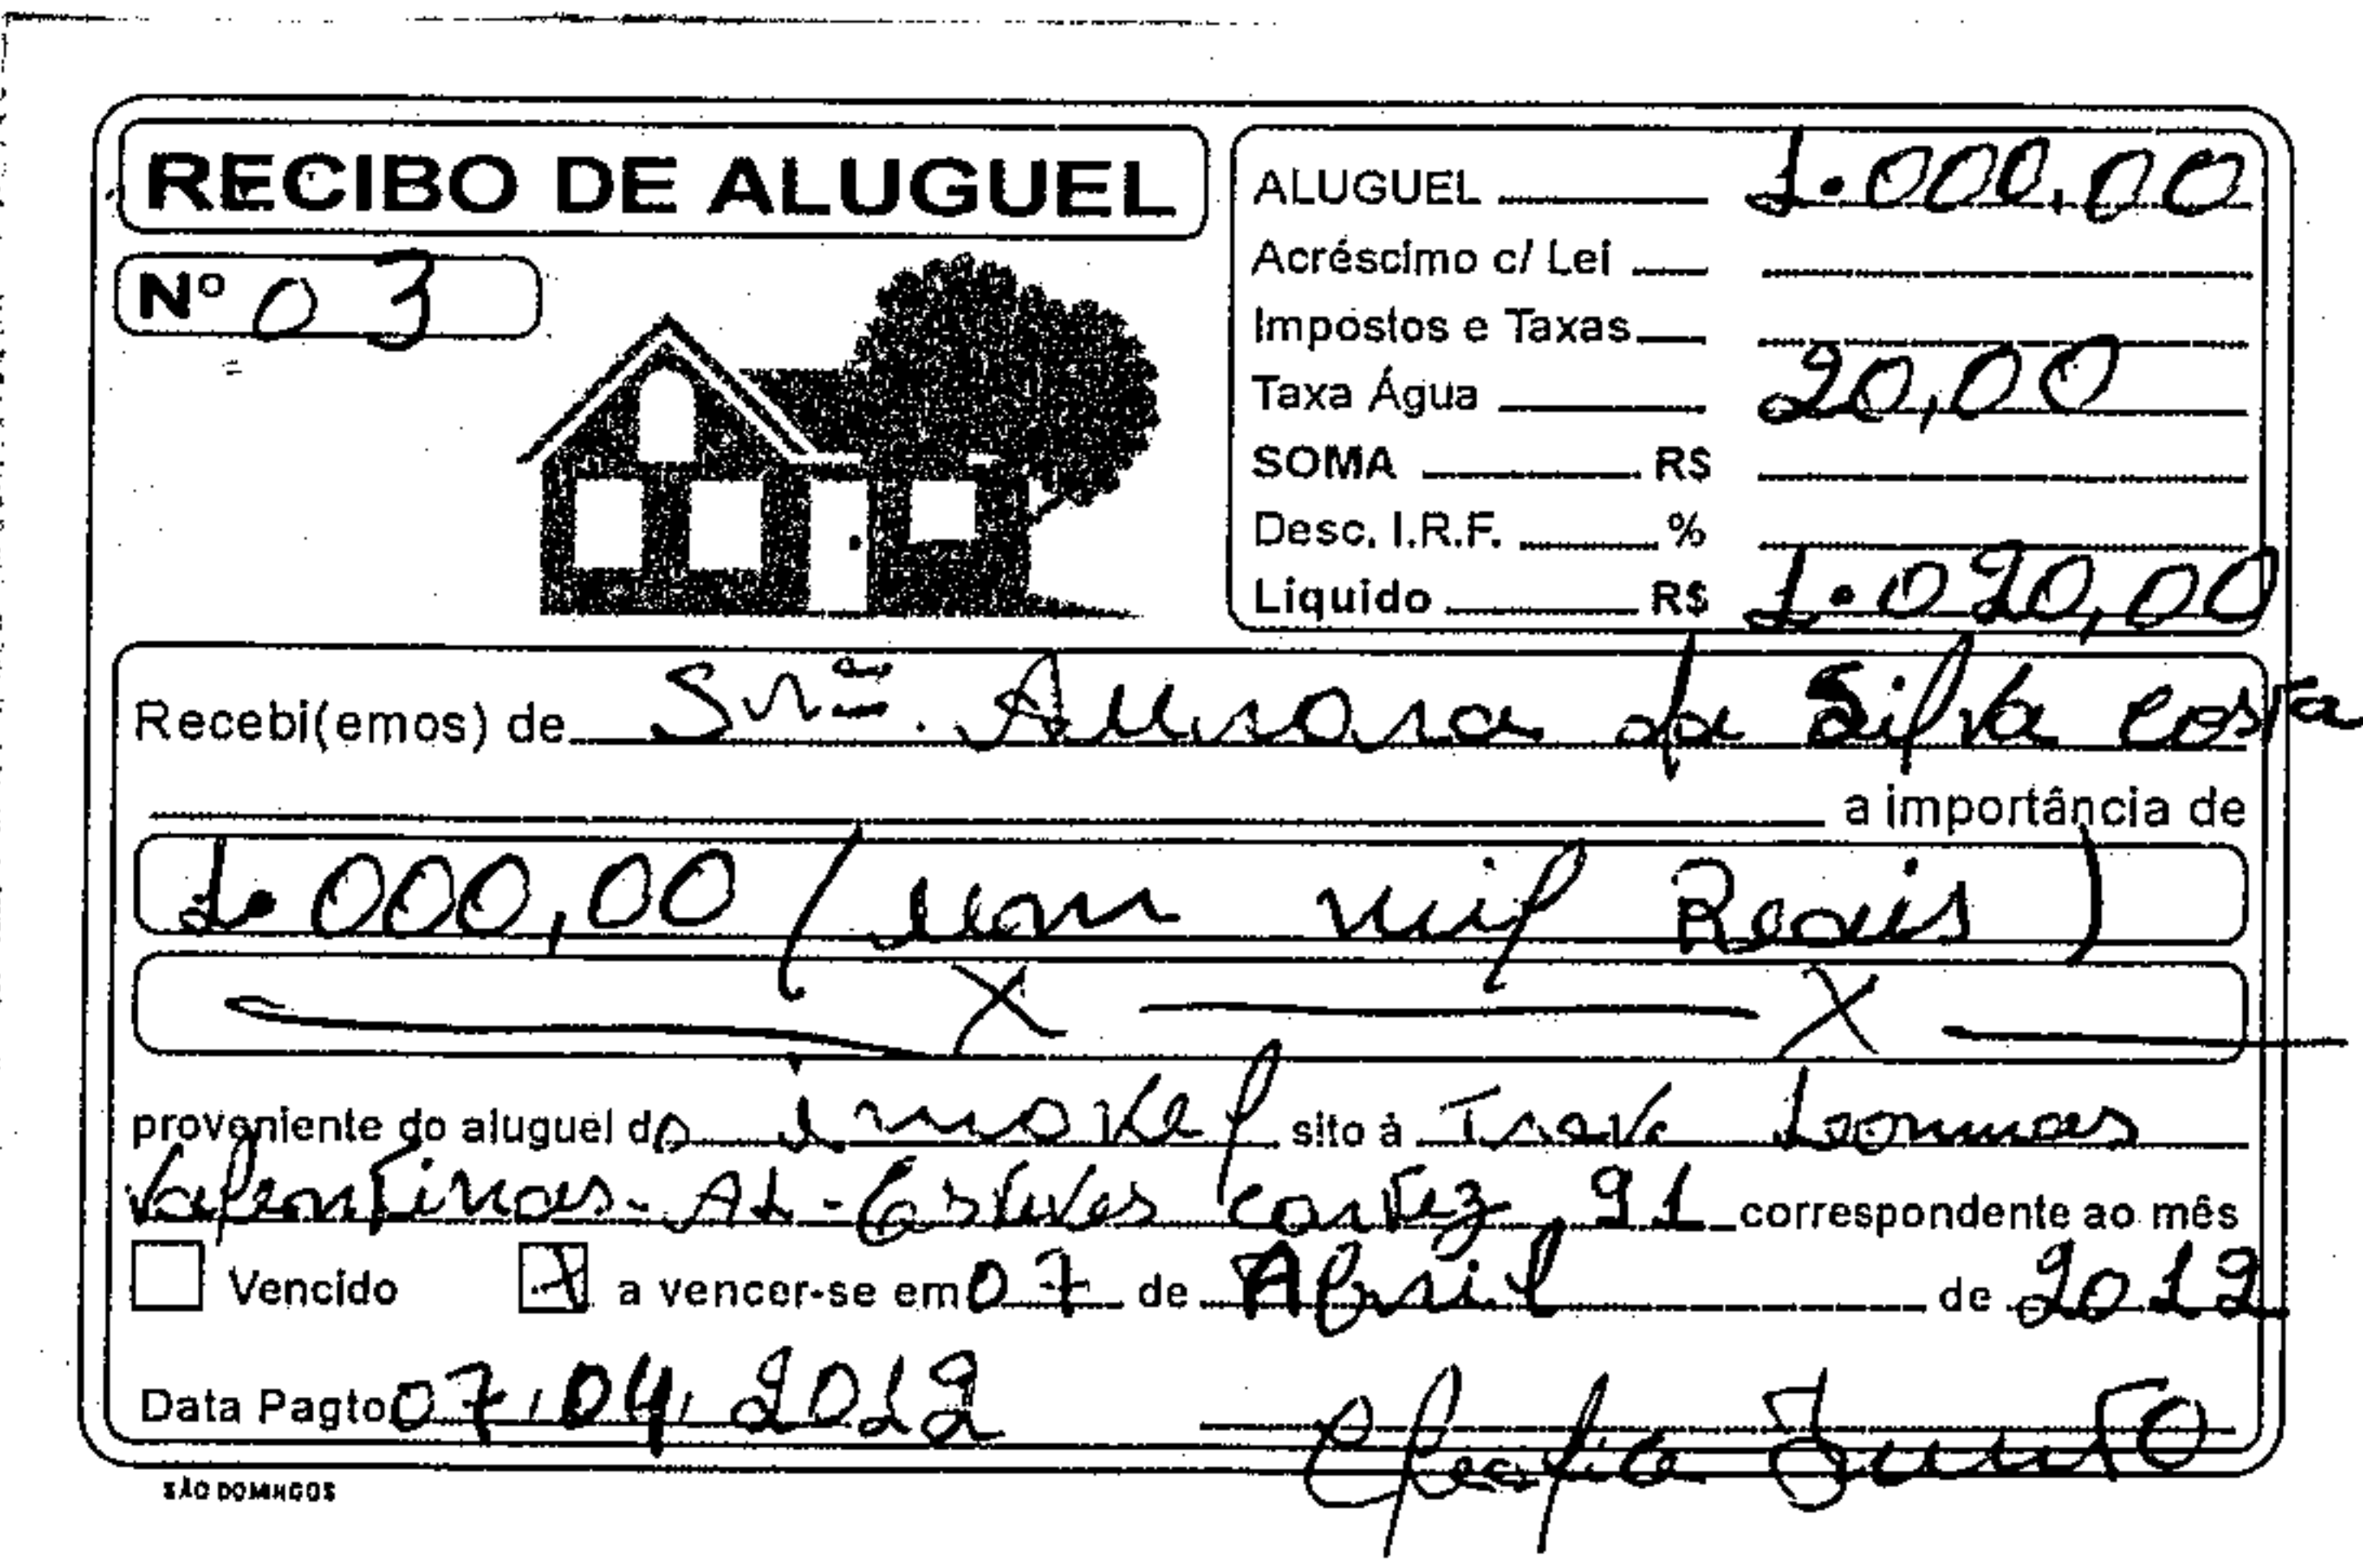 RECIBO DE ALUGUEL
Nº 03
ALUGUEL 1.000,00
Acréscimo c/ Lei
Impostos e Taxas
Taxa Água 20,00
SOMA R$
Desc. I.R.F. %
Líquido R$ 1.020,00
Recebi(emos) de Srª. Aurora da Silva Costa
a importância de
1.000,00 (um mil Reais)
X X
proveniente do aluguel do imovel sito à Trav.
Valentinas - AL - Esteves Cortez, 91 correspondente ao mês
Vencido X a vencer-se em 07 de Abril de 2012
Data Pagto 07/04/2012
SÃO DOMINGOS